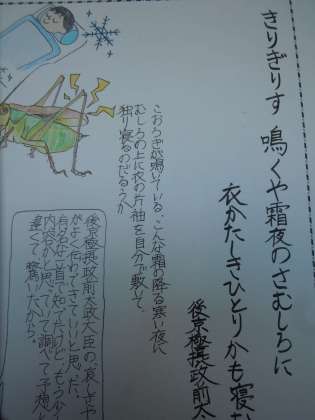 きりぎりす 鳴くや霜夜のさむしろに
衣かたしきひとりかも寝
後京極摂政前太
こおろぎが鳴いている、こんな霜の降る寒い夜に
むしろの上に衣の片袖を自分で敷いて
独り寝るのだろうか
後京極摂政前太政大臣の哀しさや
がよく伝わってきていいと思った。
有名な一首で知ってたけど、もう少
内容かと思っていて調べて予想し
違くて驚いたから。